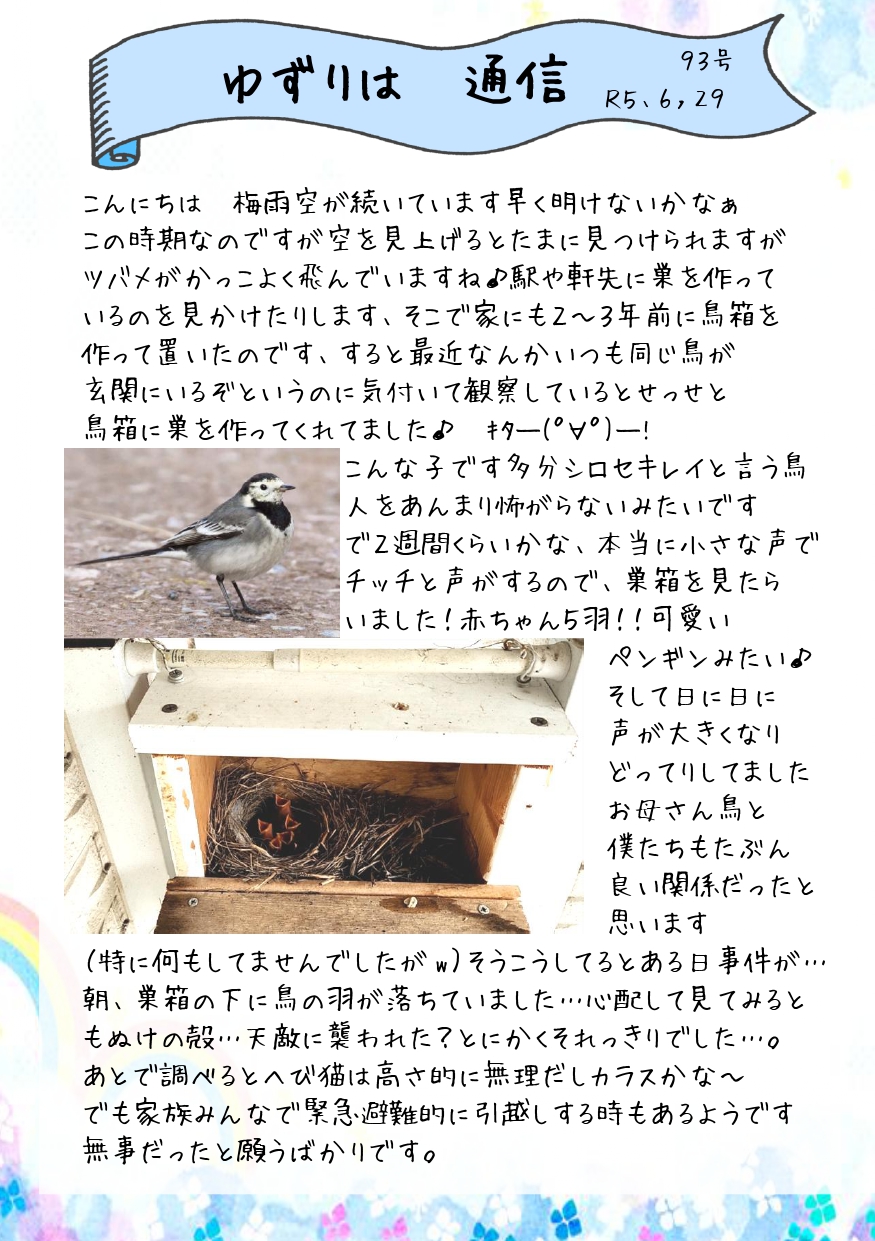 ゆずりは 通信
93号
R5、6,29
こんにちは 梅雨空が続いています早く明けないかなぁ
この時期なのですが空を見上げるとたまに見つけられますが
ツバメがかっこよく飛んでいますね♪駅や軒先に巣を作って
いるのを見かけたりします、そこで家にも2～3年前に鳥箱を
作って置いたのです、すると最近なんかいつも同じ鳥が
玄関にいるぞというのに気付いて観察しているとせっせと
鳥箱に巣を作ってくれてました♪ ｷﾀ―(ﾟ∀ﾟ)―!
こんな子です多分シロセキレイと言う鳥
人をあんまり怖がらないみたいです
で2週間くらいかな、本当に小さな声で
チッチと声がするので、巣箱を見たら
いました！赤ちゃん5羽！！可愛い
ペンギンみたい♪
そして日に日に
声が大きくなり
どってりしてました
お母さん鳥と
僕たちもたぶん
良い関係だったと
思います
(特に何もしてませんでしたがw)そうこうしてるとある日事件が…
朝、巣箱の下に鳥の羽が落ちていました…心配して見てみると
もぬけの殻…天敵に襲われた？とにかくそれっきりでした…。
あとで調べるとへび猫は高さ的に無理だしカラスかな～
でも家族みんなで緊急避難的に引越しする時もあるようです
無事だったと願うばかりです。